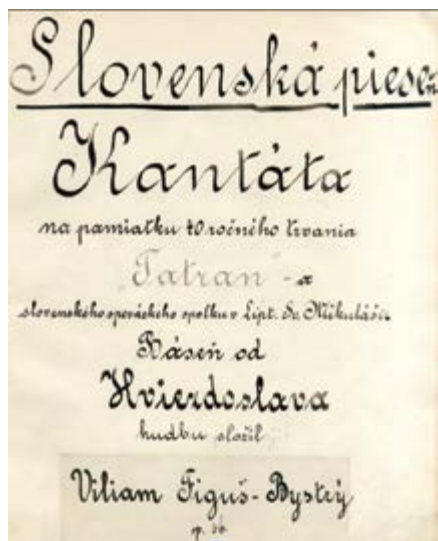 Slovenská pieseň
Kantáta
na pamiatku 40 ročného trvania
"Tatran"-a
slovenského speváckeho spolku v Lipt. Sv. Mikuláši.
Báseň od
Hviezdoslava
hudbu složil
Viliam Figuš-Bystrý
op.